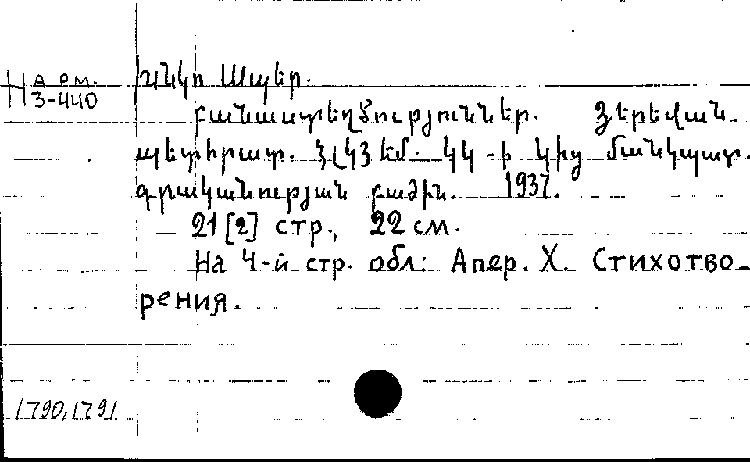 На арм.
3-440
Խնկո Ապեր.
Բանաստեղծություններ. Յերեվան.
պետհրատ. ՀԼԿՅԵՄ. ԿԿ -ի կից մանկպատ.
գրականության բաժին. 1937.
21 [2] стр., 22 см.
На 4-й стр. обл.: Апер. Х. Стихотво-
рения.
1790, 1791